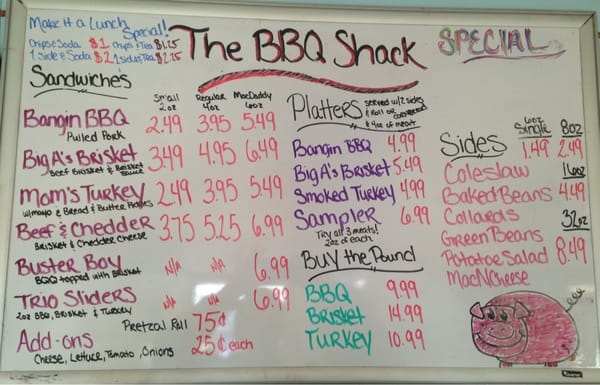 Make it a Lunch Special!
Chips & Soda $1 Chips & Tea $1.25
1 Side & Soda $2 1 Side & Tea $2.25
The BBQ Shack
SPECIAL
Sandwiches
Small 2oz Regular 4oz MacDaddy 6oz
Bangin BBQ 2.49 3.95 5.49
Pulled Pork
Big A's Brisket 3.49 4.95 6.49
Beef Brisket & Brisket Sauce
Mom's Turkey 2.49 3.95 5.49
w/mayo & Bread & Butter Pickles
Beef & Chedder 3.75 5.25 6.99
Brisket & Chedder Cheese
Buster Boy N/A N/A 6.99
BBQ topped with Brisket
Trio Sliders N/A N/A 6.99
2oz BBQ, Brisket & Turkey
Pretzal Roll 75¢
Add-ons 25¢ each
Cheese, Lettuce, Tomato, Onions
Platters
served w/2 sides
& Roll or Cornbread
& 4oz of meat
Bangin BBQ 4.99
Big A's Brisket 5.49
Smoked Turkey 4.99
Sampler 6.99
Try all 3 meats!
2oz of each
Buy the Pound
BBQ 9.99
Brisket 14.99
Turkey 10.99
Sides
6oz Single 1.49
8oz 2.49
Coleslaw
16oz
Baked Beans 4.49
Collards
32oz
Green Beans
Potatoe Salad 8.49
MacNCheese